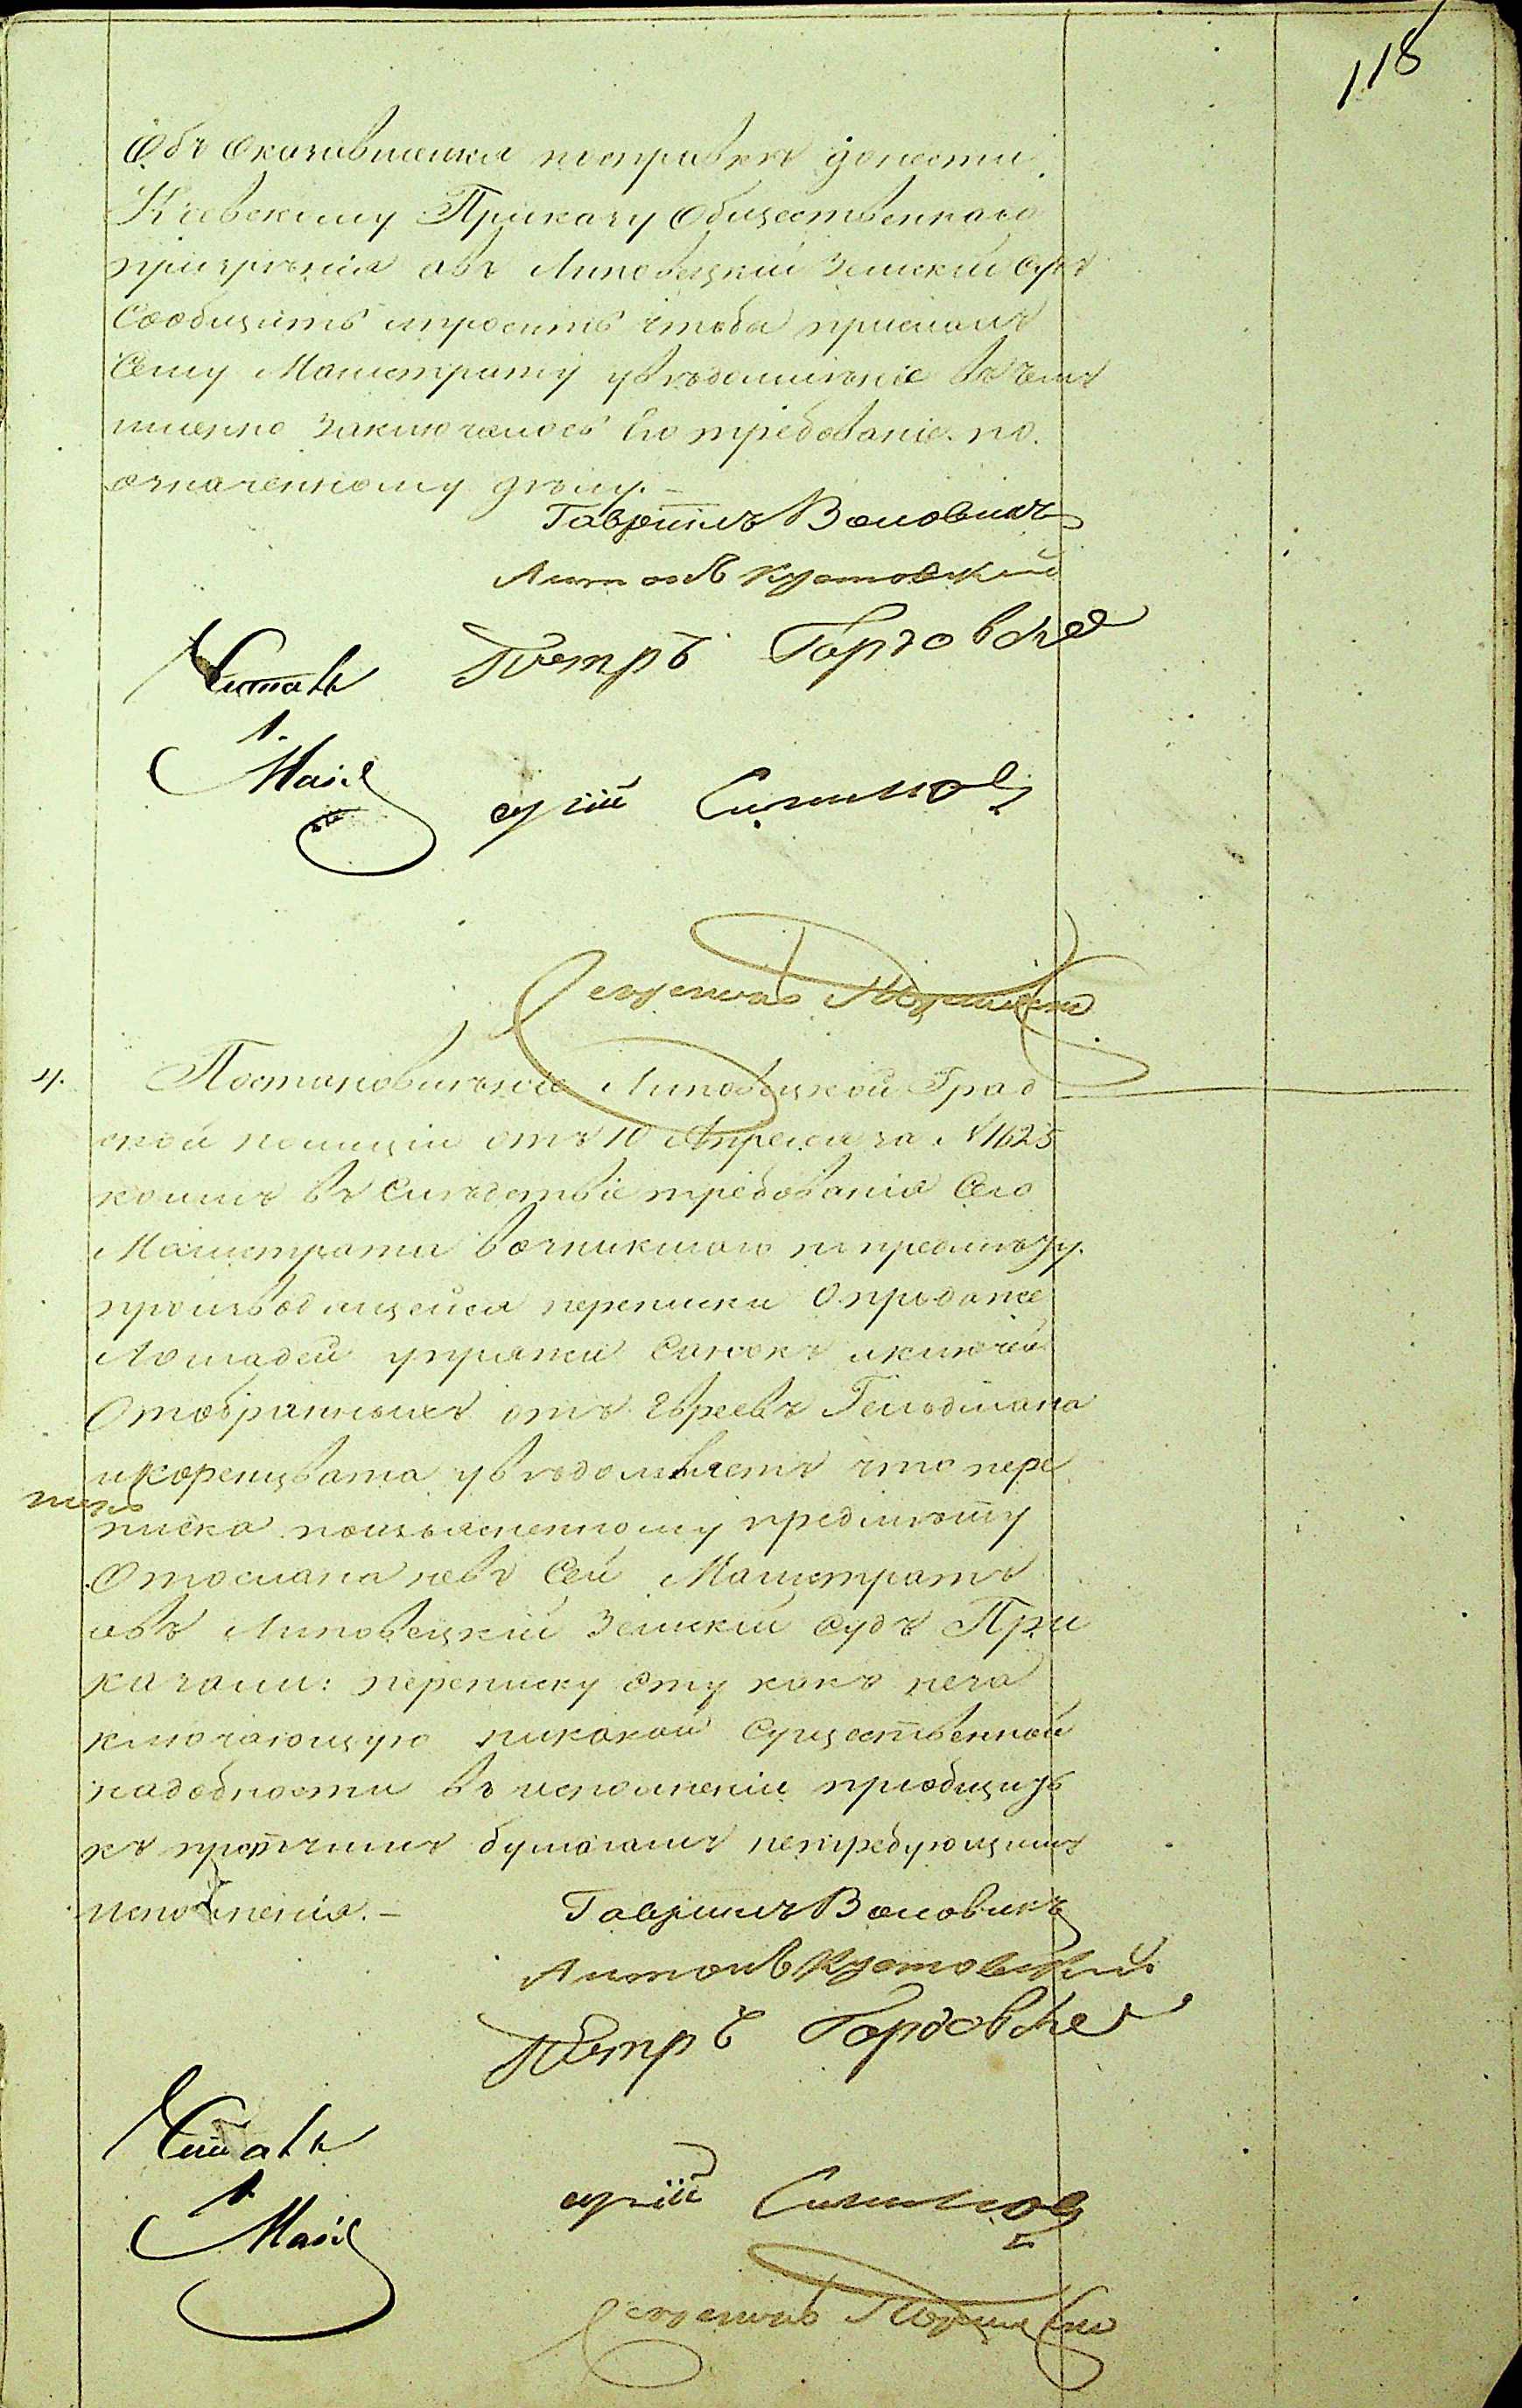 118
Объ оказавшемся посправкѣ донести
Кіевскому Приказу Общественнаго
призрѣнія авъ Липовецкій Земскій Судъ
Сообщить ипросить чтобы прислалъ
Сему Магистрату увѣдомлѣніе въ чемъ
именно заключалось Его требованіе по
означенному дѣлу.
Гавріилъ Воловикъ
Антонъ Кустовскій
Петръ Гордовскі
Читалъ
4.
Постановилѣніе Липовецкой Град
ской полиціи отъ 10 Апреля за № 1625
коимъ въ Слѣдствіе требованія Сего
Магистрата возникшаго по предмѣту
производящейся переписки О продаже
Лошадей упряжи Санокъ иключей
Отобранныхъ отъ Евреевъ Гельдмана
увѣдомляетъ что пере
писка поизъясненному предмѣту
Отослана невъ Сей Магистратъ
авъ Липовецкій Земскій Судъ При
казали: переписку эту какъ неза
ключающую никакой Существенной
надобности въ исполненіи пріобщить
къ протчимъ бумагамъ нетребующимъ
исполненія.
Гавріилъ Воловикъ
Антонъ Кустовскій
Петръ Гордовскі
Читалъ